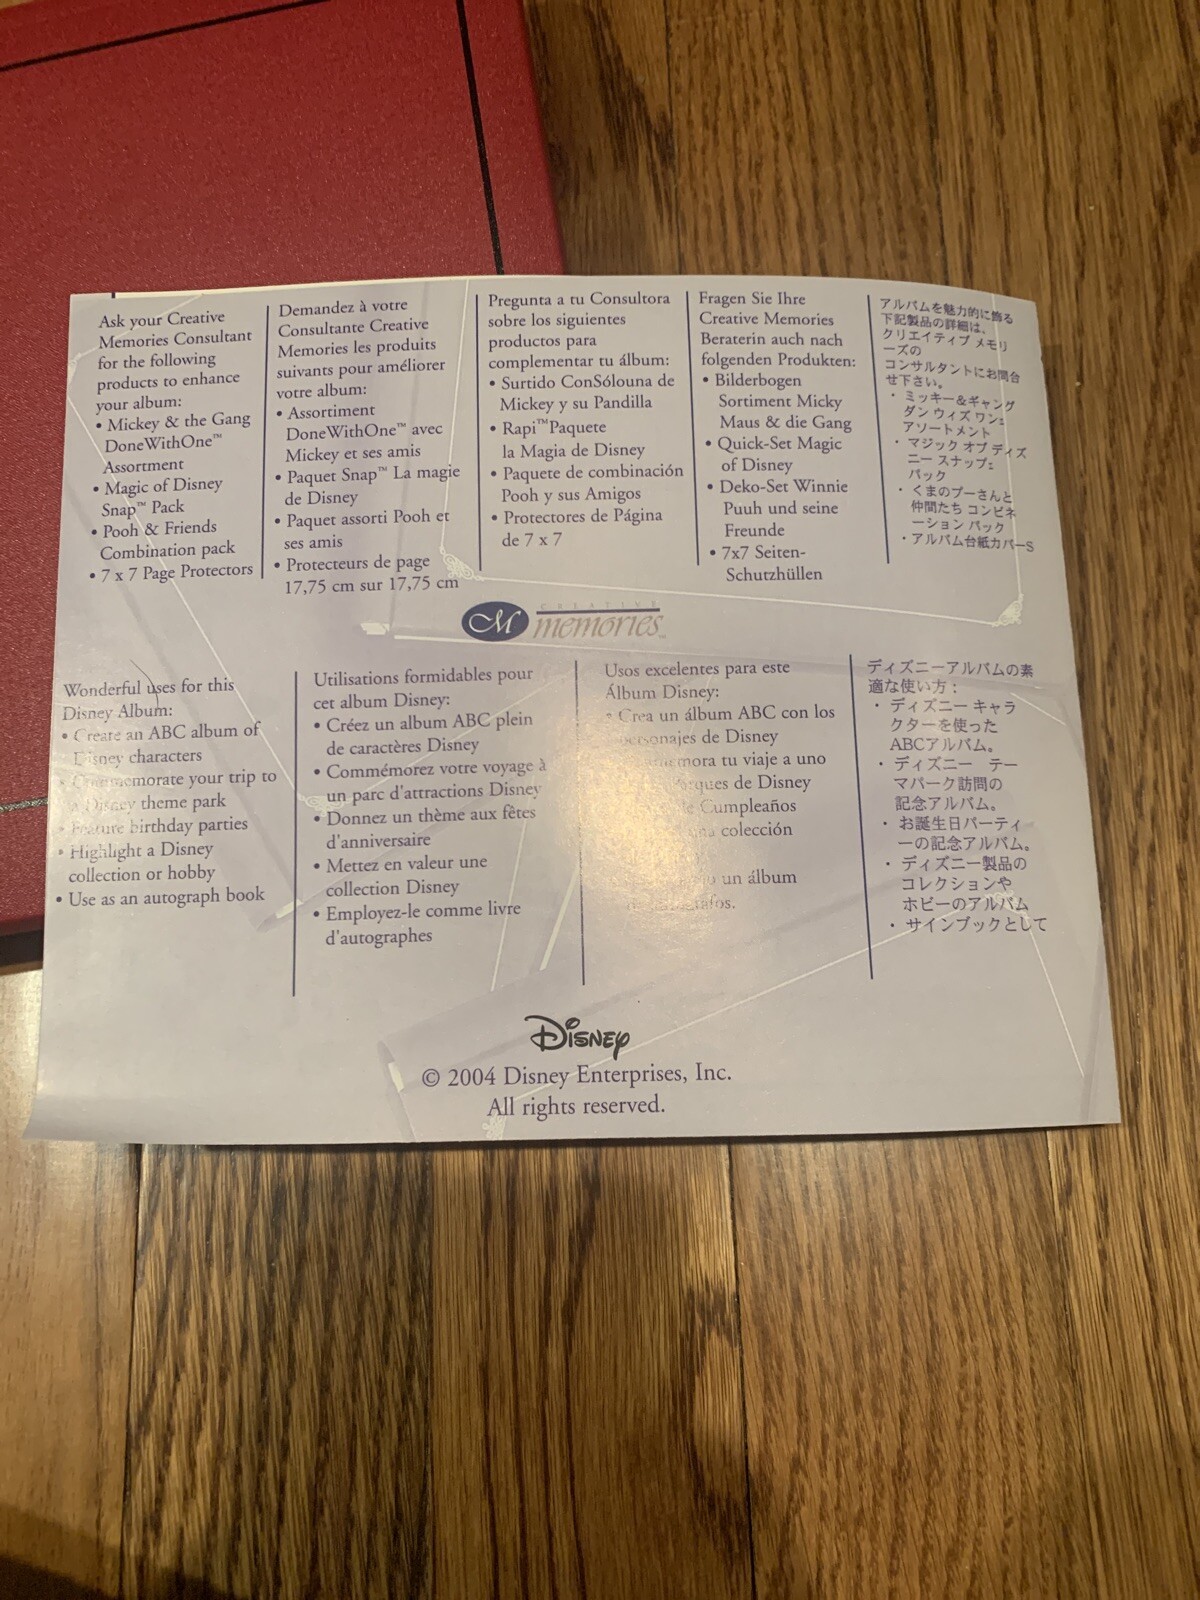 Ask your Creative
Memories Consultant
for the following
products to enhance
your album:
• Mickey & the Gang
DoneWithOne™
Assortment
• Magic of Disney
Snap™ Pack
• Pooh & Friends
Combination pack
• 7 x 7 Page Protectors
Demandez à votre
Consultante Creative
Memories les produits
suivants pour améliorer
votre album:
• Assortiment
DoneWithOne™ avec
Mickey et ses amis
• Paquet Snap™ La magie
de Disney
• Paquet assorti Pooh et
ses amis
• Protecteurs de page
17,75 cm sur 17,75 cm
Pregunta a tu Consultora
sobre los siguientes
productos para
complementar tu álbum:
• Surtido ConSólouna de
Mickey y su Pandilla
• Rapi™Paquete
la Magia de Disney
• Paquete de combinación
Pooh y sus Amigos
• Protectores de Página
de 7 x 7
Fragen Sie Ihre
Creative Memories
Beraterin auch nach
folgenden Produkten:
• Bilderbogen
Sortiment Micky
Maus & die Gang
• Quick-Set Magic
of Disney
• Deko-Set Winnie
Puuh und seine
Freunde
• 7x7 Seiten-
Schutzhüllen
アルバムを魅力的に飾る
下記製品の詳細は、
クリエイティブ メモリ
ーズの
コンサルタントにお問合
せ下さい。
・ミッキー&ギャング
ダン ウィズ ワン:
アソートメント
・マジック オブ ディズ
ニー スナップ:
パック
・くまのプーさんと
仲間たち コンビネ
ーション パック
・アルバム台紙カバーS
CREATIVE
M memories™
Wonderful uses for this
Disney Album:
• Create an ABC album of
Disney characters
Commemorate your trip to
a Disney theme park
• Feature birthday parties
• Highlight a Disney
collection or hobby
• Use as an autograph book
Utilisations formidables pour
cet album Disney:
• Créez un album ABC plein
de caractères Disney
• Commémorez votre voyage à
un parc d'attractions Disney
• Donnez un thème aux fêtes
d'anniversaire
• Mettez en valeur une
collection Disney
• Employez-le comme livre
d'autographes
Usos excelentes para este
Álbum Disney:
• Crea un álbum ABC con los
personajes de Disney
tu viaje a uno
de Disney
Cumpleaños
colección
un álbum
ディズニーアルバムの素
適な使い方：
・ディズニー キャラ
クターを使った
ABCアルバム。
・ディズニー テー
マパーク訪問の
記念アルバム。
・お誕生日パーティ
ーの記念アルバム。
・ディズニー製品の
コレクションや
ホビーのアルバム
・サインブックとして
Disney
© 2004 Disney Enterprises, Inc.
All rights reserved.